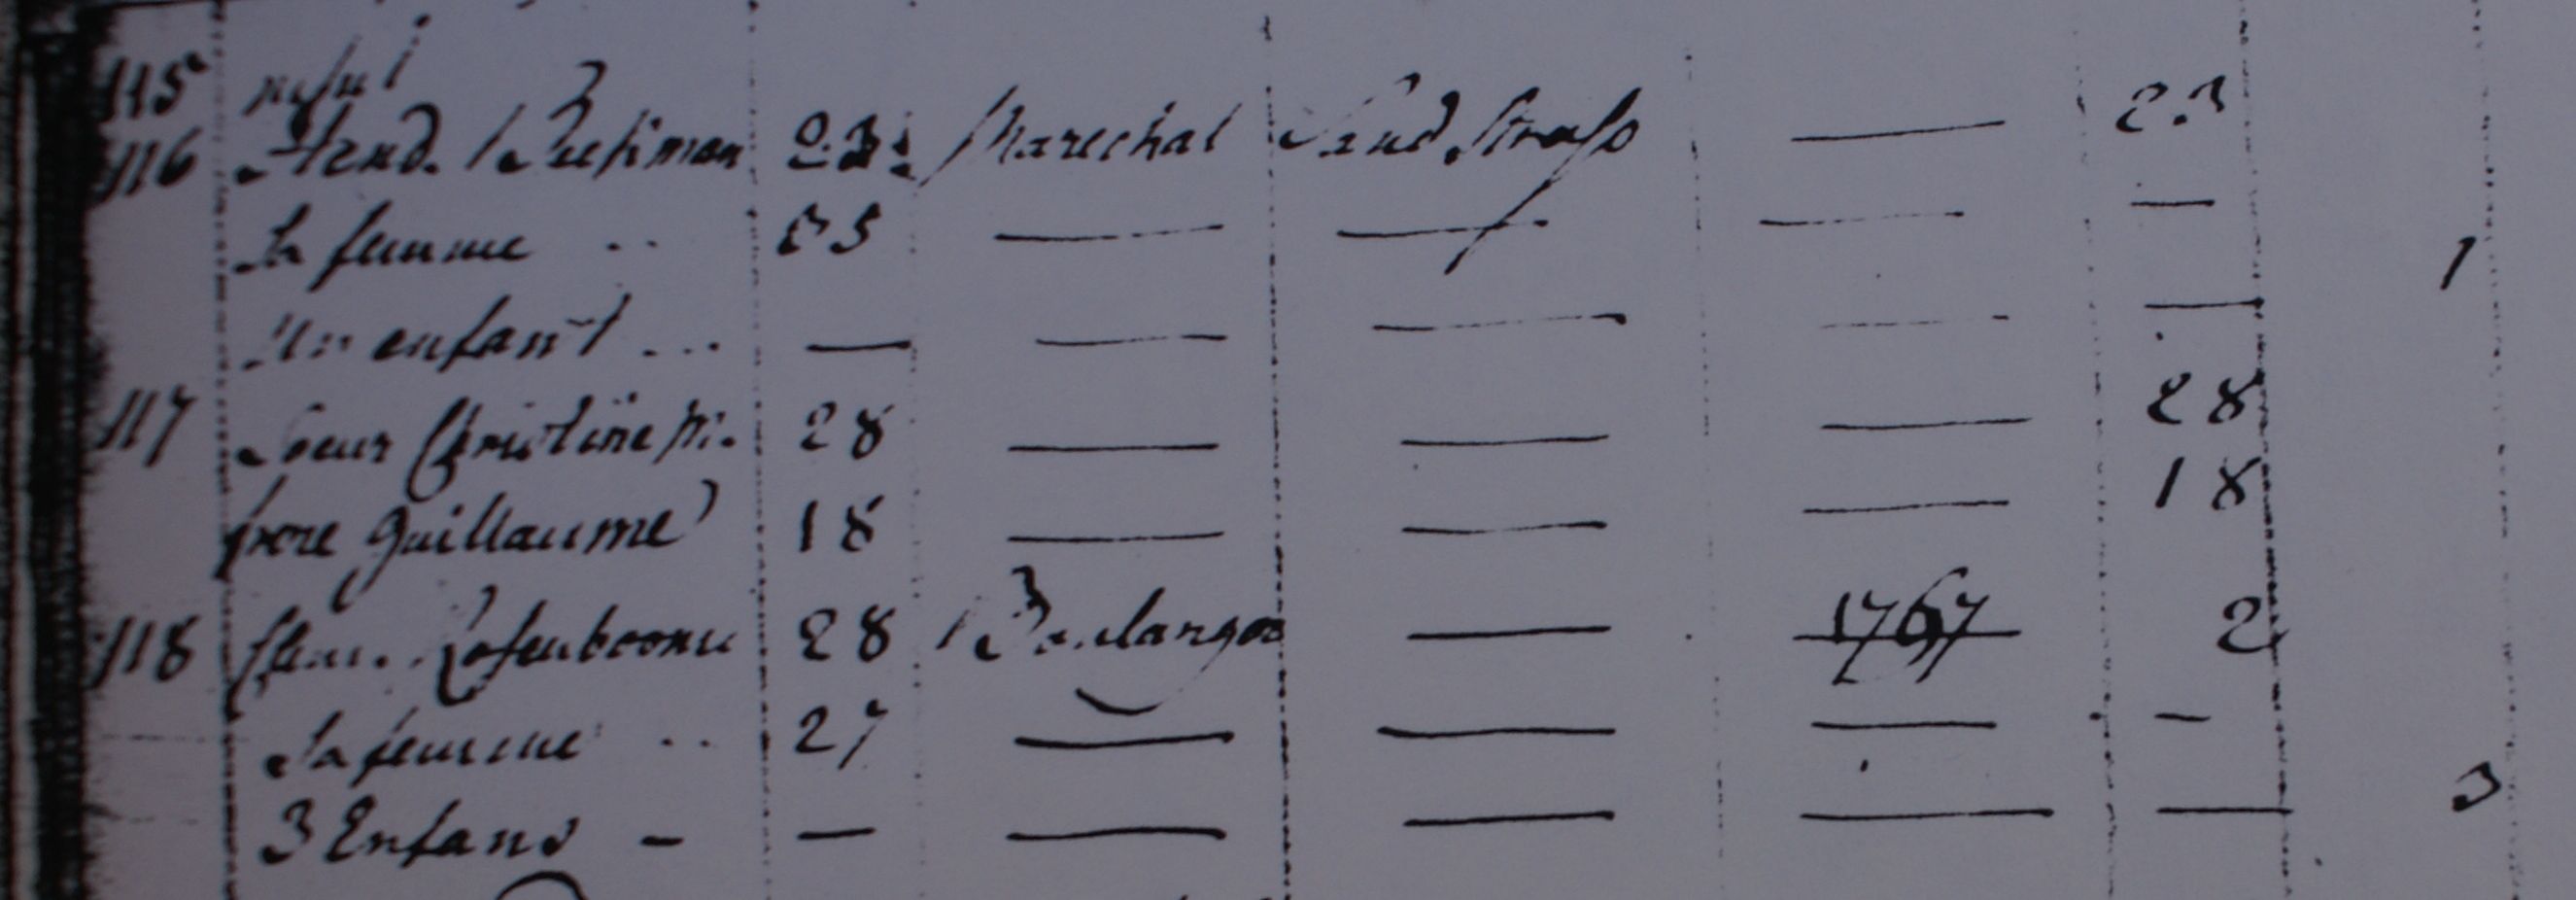 115
116 23 Marechal Sand Strass — 23
Sa femme .. 35 — — — —
1
Un enfant ... — — — — —
117 Soeur Christine M. 28 — — — 28
frere Guillaume 18 — — — 18
118 28 Boulanger — 1767 2
Sa femme .. 27 — — — —
3
3 Enfans - — — — — —